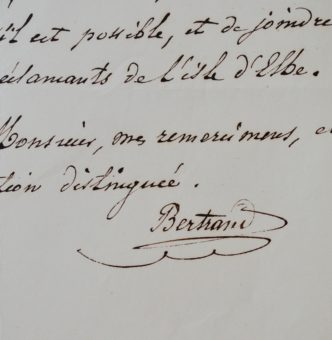 'il est possible, et de joindre
éclamants de l'isle d'Elbe.
Monsieur, mes remercimens, e
tion distinguée.
Bertrand